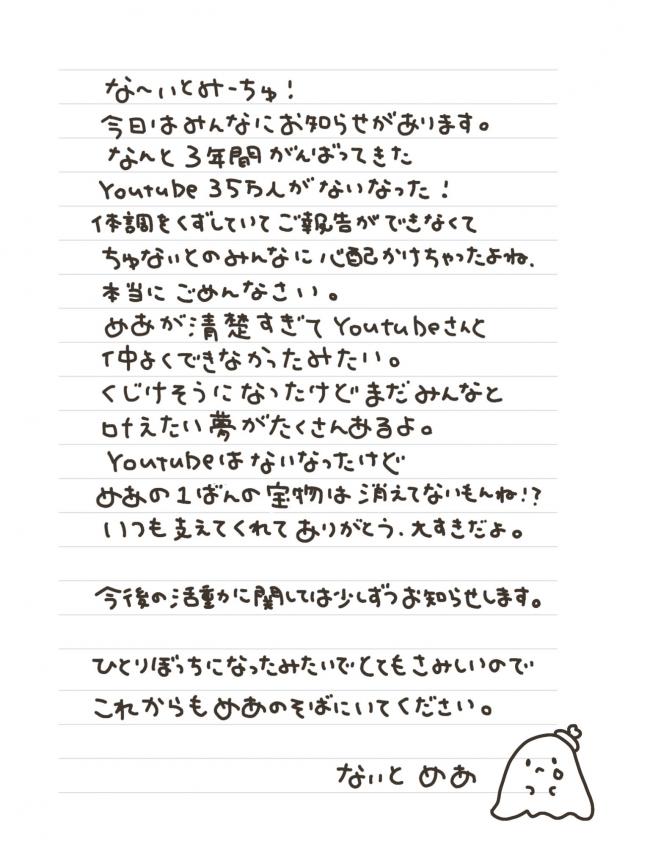 な〜いとみーちゅ！
今日はみんなにお知らせがあります。
なんと3年間がんばってきた
Youtube 35万人がないなった！
体調をくずしていてご報告ができなくて
ちゅないとのみんなに心配かけちゃったよね、
本当にごめんなさい。
めあが清楚すぎてYoutubeさんと
仲よくできなかったみたい。
くじけそうになったけどまだみんなと
叶えたい夢がたくさんあるよ。
Youtubeはないなったけど
めあの1ばんの宝物は消えてないもんね!?
いつも支えてくれてありがとう、大すきだよ。
今後の活動に関しては少しずつお知らせします。
ひとりぼっちになったみたいでとてもさみしいので
これからもめあのそばにいてください。
ないと めあ